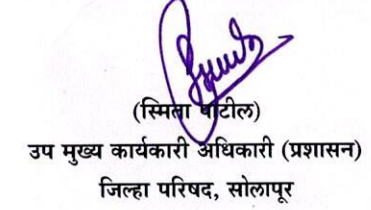 (स्मिता पाटील)
उप मुख्य कार्यकारी अधिकारी (प्रशासन)
जिल्हा परिषद, सोलापूर